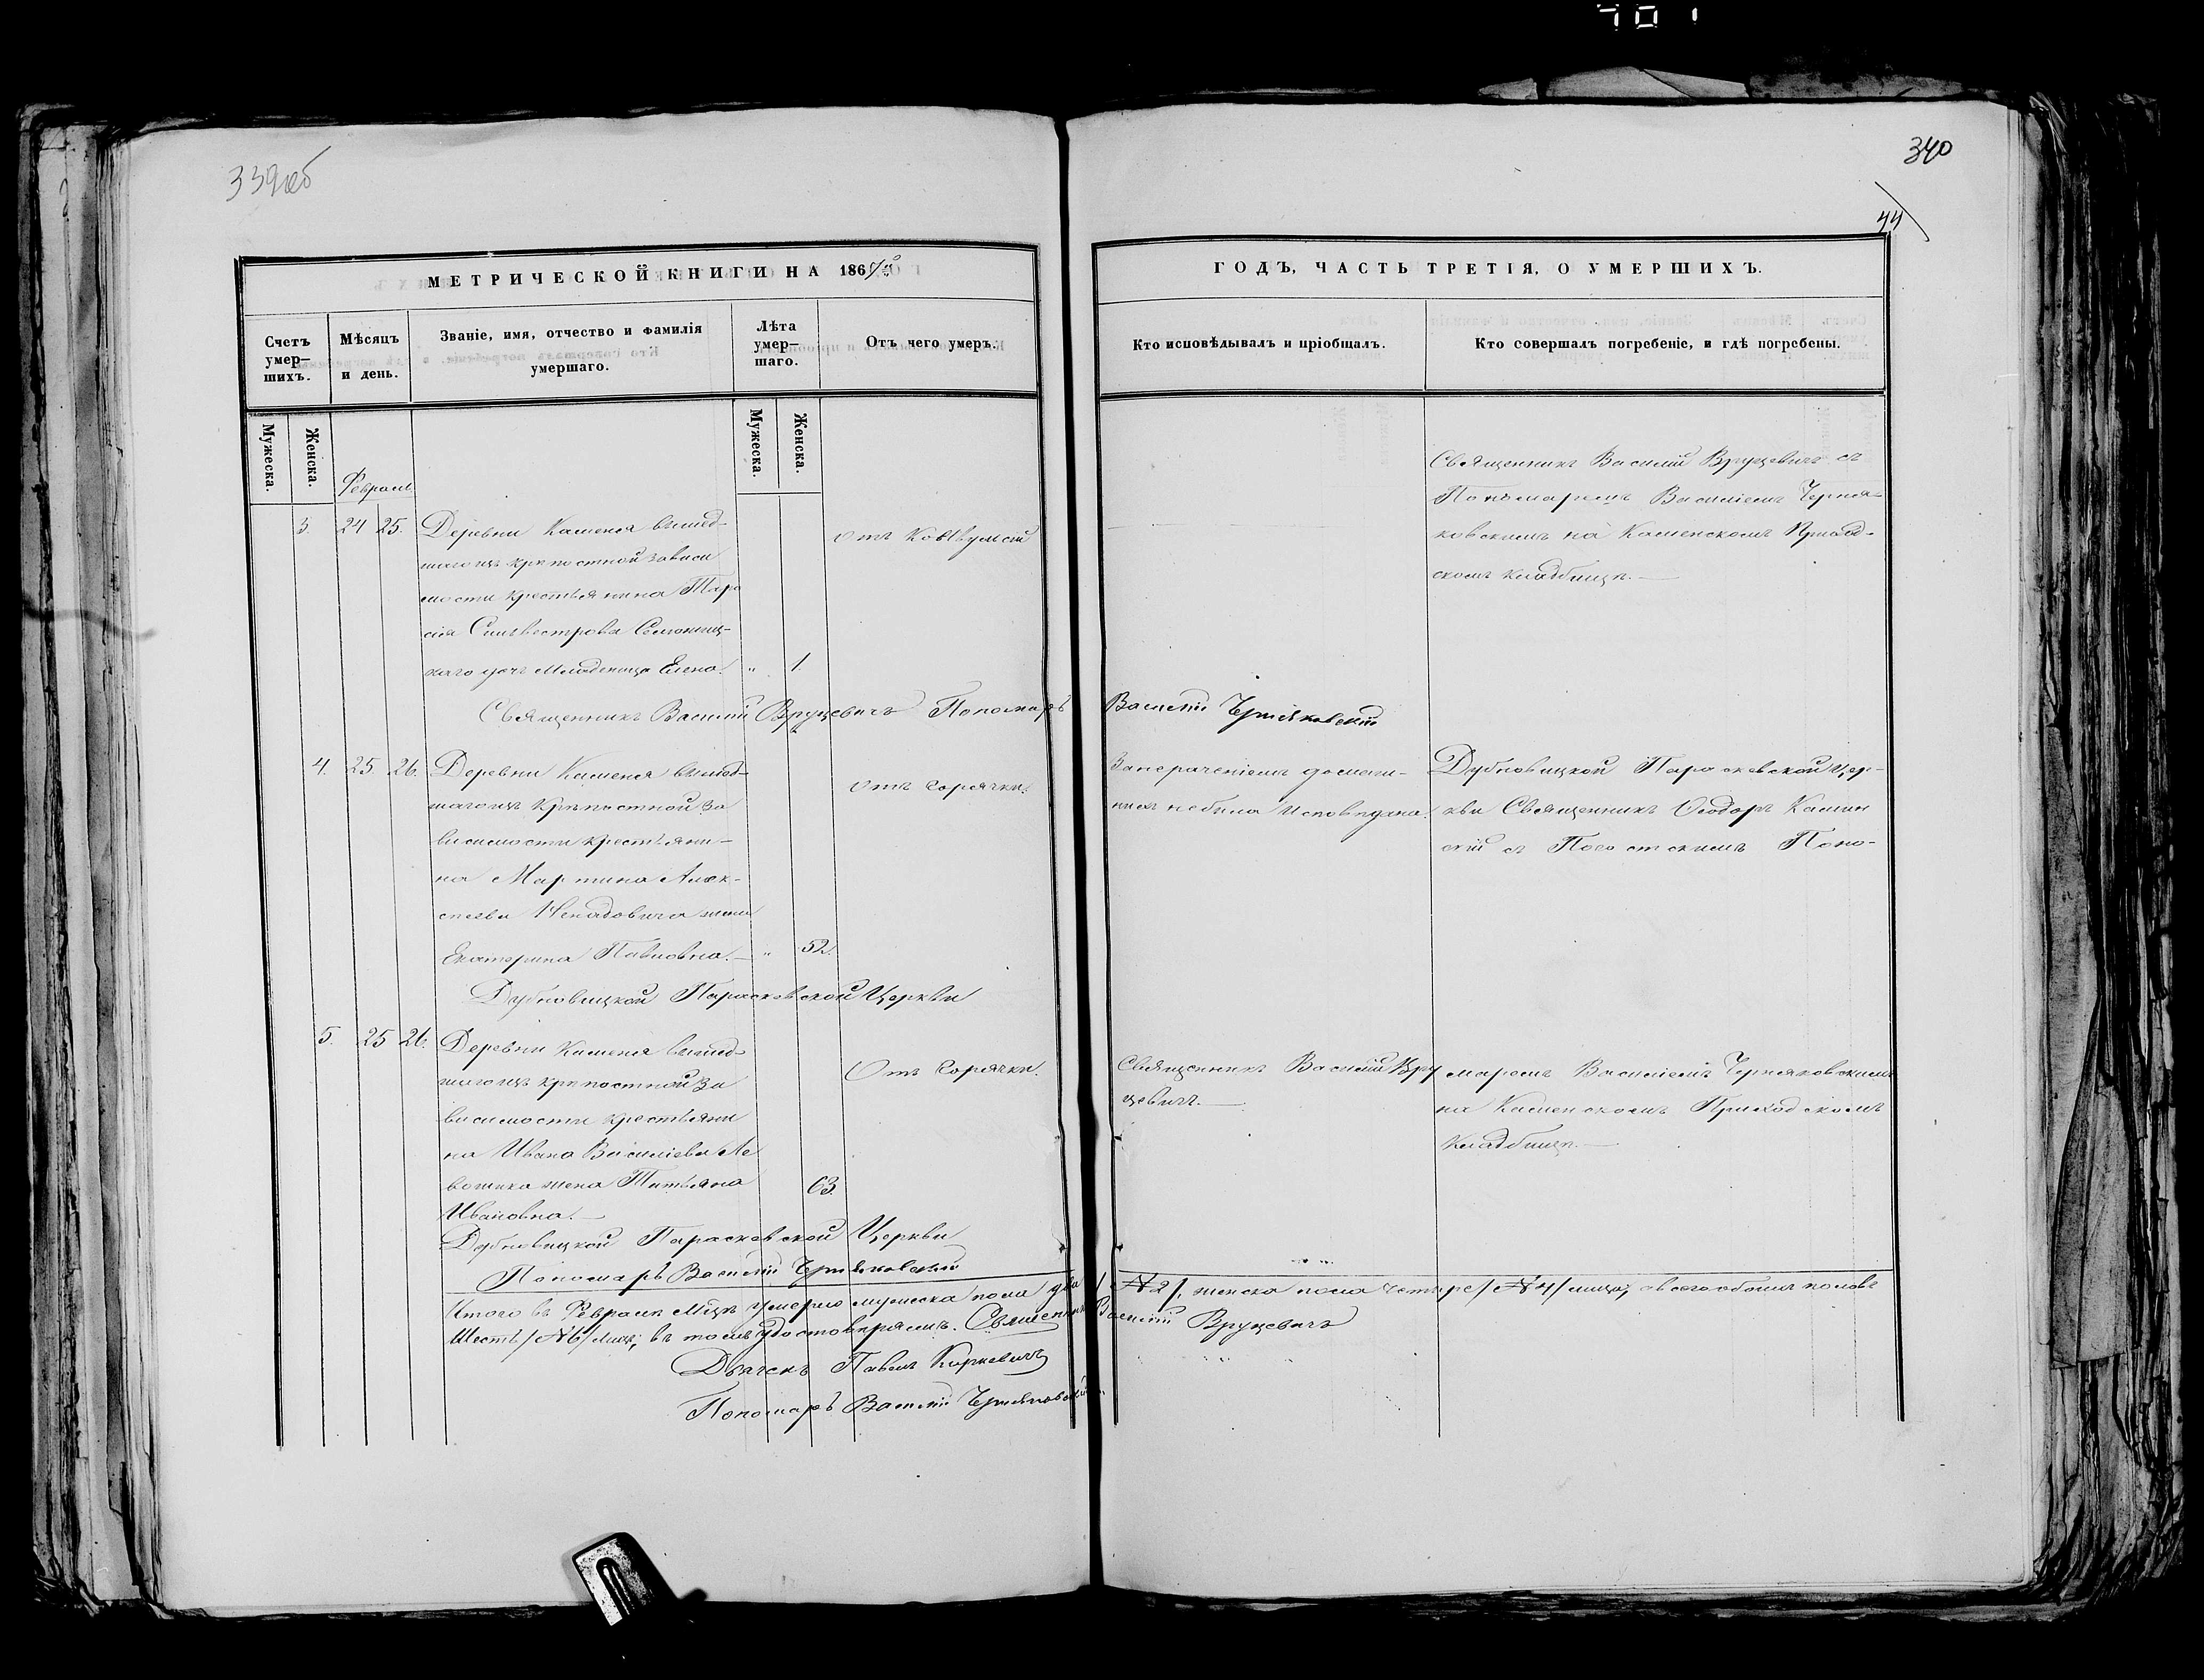 339об
340
44
МЕТРИЧЕСКОЙ КНИГИ НА 186
ГОДЪ, ЧАСТЬ ТРЕТІЯ, О УМЕРШИХЪ.
Счетъ умер—шихъ.
Мѣсяцъ и день.
Званіе, имя, отчество и фамилія умершаго.
Лѣта умер—шаго.
Отъ чего умеръ.
Кто исповѣдывалъ и пріобщалъ.
Кто совершалъ погребеніе, и гдѣ погребены.
Мужеска.
Женска.
Мужеска.
Женска.
Февраль
3. 24 25. Деревни Каменя вышед-
шаго изъ крѣпостной зависи
мости крестьянина Тара
сія Сильвестрова
младеница Елена. " 1.
отъ
Священникъ Василій Вруцевичъ съ
Пономаремъ Василіемъ Черня-
ковскимъ на Каменскомъ Приход-
скомъ кладбищѣ.—
Священникъ Василій Вруцевичъ Пономарь Василій Черняковскій
4. 25 26. Деревни Каменя вышед-
шаго изъ крѣпостной за
висимости крестьяни-
на Мартина Алек-
сѣева Ненадовича жена
Екатерина Павловна.— " 52.
отъ горячки.
не была исповѣдана.
Дубновицкой Параскевской Цер-
кви Священникъ Ѳеодоръ Камин
скій съ Погостскимъ Поно-
Дубновицкой Параскевской Церкви
5. 25 26. Деревни Каменя вышед-
шаго изъ крѣпостной За
висимости крестьяни
на Ивана Василіева Ле
вошика жена Татьяна 63.
Ивановна.—
Отъ горячки.
Священникъ Василій Вру
цевичъ.—
маремъ Василіемъ Черняковскимъ
на Каменскомъ Приходскомъ
Кладбищѣ.—
Дубновицкой Параскевской Церкви
Пономарь Василій Черняковскій
Итого въ Февралѣ Мцѣ умерло мужеска пола два /№ 2/, женска пола четыре /№ 4/ лица, а всего обоихъ половъ
Шесть /№ 6/ лицъ; въ томъ удостовѣряемъ. Священникъ Василій Вруцевичъ
Дьячекъ Павелъ Киркевичъ
Пономарь Василій Черняковскій.